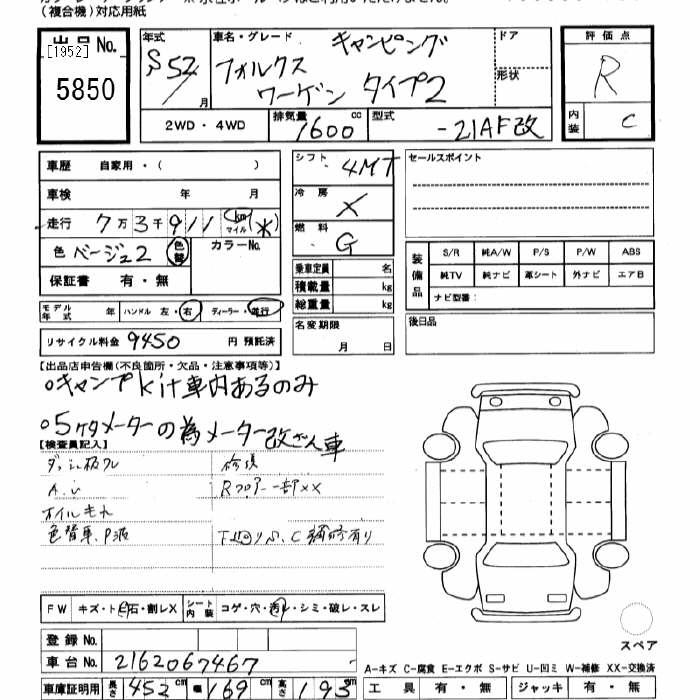 (複合機)対応用紙
出品No.
[1952]
5850
年式
S52/
月
車名・グレード
キャンピング
フォルクス
ワーゲン タイプ2
ドア
形状
2WD・4WD
排気量
1600
cc
型式
-21AF改
評価点
R
内装
C
車歴 自家用・( )
車検 年 月
走行 7万3千911 km マイル (*)
色 ベージュ2 色替 カラーNo.
保証書 有・無
モデル年式 年 ハンドル 左・右 ディーラー・並行
リサイクル料金 9450 円 預託済
シフト 4MT
冷房 X
燃料 G
乗車定員 名
積載量 kg
総重量 kg
名変期限
月 日
セールスポイント
装備品
S/R 純A/W P/S P/W ABS
純TV 純ナビ 革シート 外ナビ エアB
ナビ型番:
後日品
【出品店申告欄(不良箇所・欠品・注意事項等)】
○キャンプkit車内あるのみ
○5ケタメーターの為メーター改ざん車
【検査員記入】
A.U
オイルモレ
色替車、P波
修復
Rフロアー一部XX
下廻りS、C補修有り
FW キズ・ト石・割レX シート内装 コゲ・穴・汚レ・シミ・破レ・スレ
登録No.
車台No. 2162067467
車庫証明用 長さ 453 cm 幅 169 cm 高さ 193 cm
スペア
A-キズ C-腐食 E-エクボ S-サビ U-凹ミ W-補修 XX-交換済
工具 有・無 ジャッキ 有・無